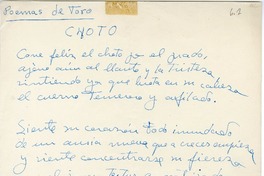 Poemas de Toro
CHOTO
Corre feliz el choto por el prado,
ajeno aún al llanto y la tristeza
sintiendo ya que brota en su cabeza
el cuerno temprano y afilado.
Siente su corazón todo inundado
de un ansia nueva que a veces empieza
y siente concentrarse su fiereza